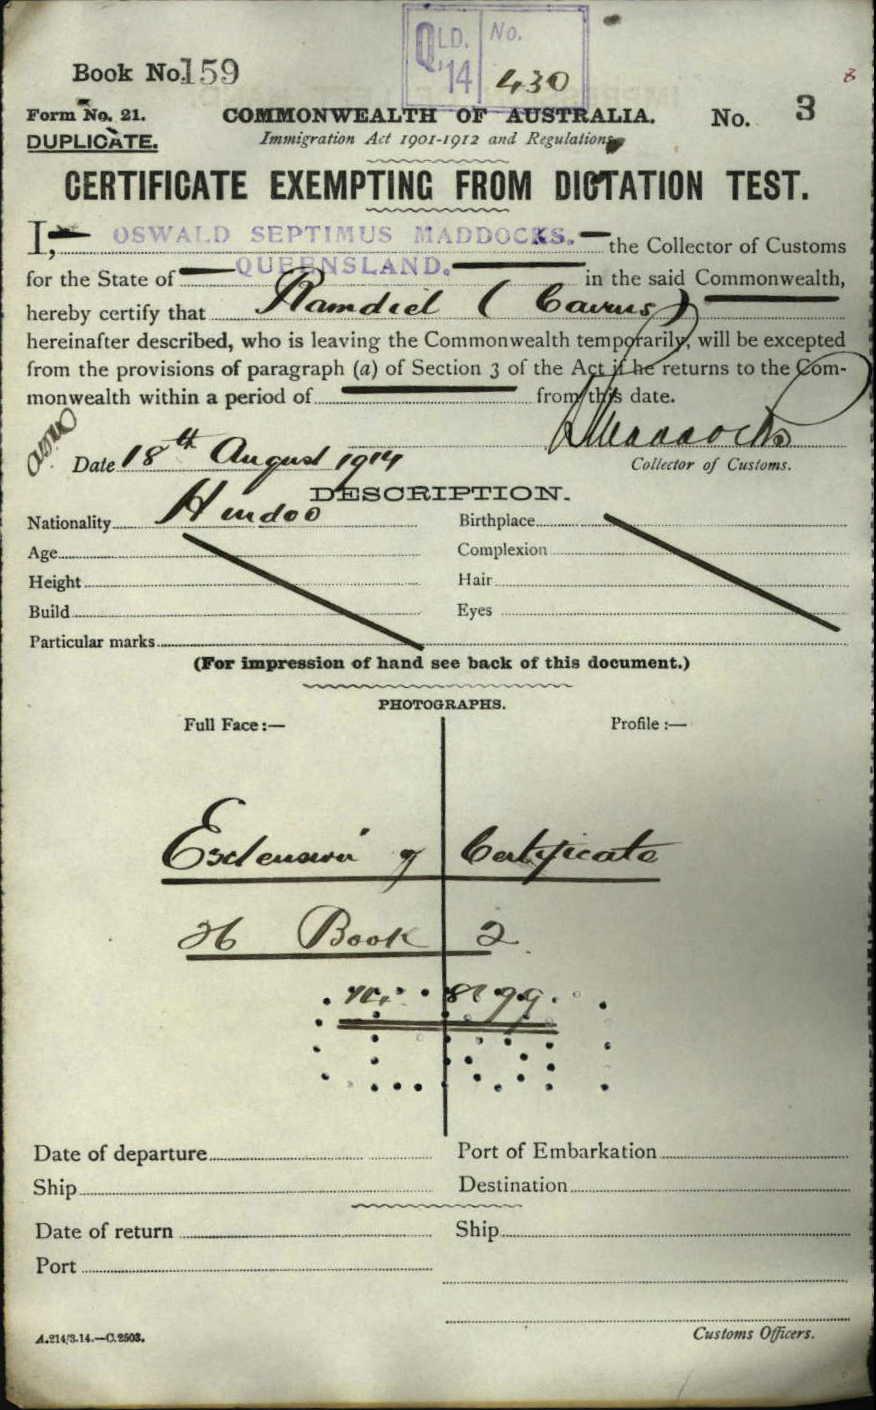 QLD. No.
'14 430
8
Book No. 159
Form No. 21. COMMONWEALTH OF AUSTRALIA. No. 3
DUPLICATE. Immigration Act 1901-1912 and Regulations
CERTIFICATE EXEMPTING FROM DICTATION TEST.
I, OSWALD SEPTIMUS MADDOCKS. the Collector of Customs
for the State of QUEENSLAND. in the said Commonwealth,
hereby certify that Ramdiel (Cairns)
hereinafter described, who is leaving the Commonwealth temporarily, will be excepted
from the provisions of paragraph (a) of Section 3 of the Act if he returns to the Com-
monwealth within a period of from this date.
Maddocks
Date 18th August 1914 Collector of Customs.
DESCRIPTION.
Nationality Hindoo Birthplace
Age Complexion
Height Hair
Build Eyes
Particular marks
(For impression of hand see back of this document.)
PHOTOGRAPHS.
Full Face:— Profile:—
Extension of Certificate
26 Book 2
Date of departure Port of Embarkation
Ship Destination
Date of return Ship
Port
A.214/3.14.—C.2503. Customs Officers.